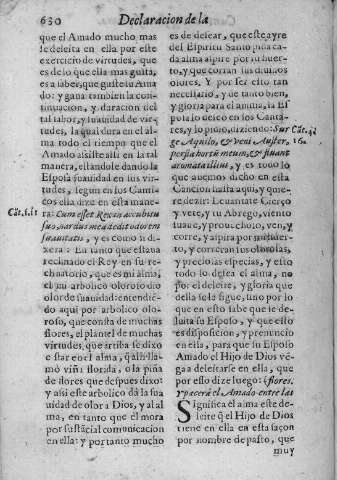 630 Declaracion de la
que el Amado mucho mas
se deleita en ella por este
exercicio de virtudes, que
es de lo que ella mas gusta,
es a saber, que guste su Ama-
do: y gana tambien la conti-
nuacion, y duracion del
tal sabor, y suauidad de vir-
tudes, la qual dura en el al-
ma todo el tiempo que el
Amado assiste alli en la tal
manera, estandole dando la
Esposa suauidad en sus vir-
tudes, segun en los Canti-
cos ella dize en esta mane-
Cãt. 1. 11 ra: Cum esset Rex in accubitu
suo, nardus mea dedit odorem
suauitatis, y es como si di-
xera: En tanto que estaua
reclinado el Rey en su re-
clinatorio, que es mi alma,
el mi arbolico oloroso dio
olor de suauidad: entendiẽ-
do aqui por arbolico olo-
roso, que consta de muchas
flores, el plantel de muchas
virtudes, que arriba se dixo
estar en el alma, q̃ alli lla-
mó viña florida, o la piña
de flores que despues dixo:
y assi este arbolico dà la sua
uidad de olor a Dios, y al al
ma, en tanto que el mora
por sustãcial comunicacion
en ella: y por tanto mucho
es de desear, que este ayre
del Espiritu Santo pida ca-
da alma aspire por su huer-
to, y que corran sus diuinos
olores. Y por ser esto tan
necessario, y de tanto bien,
y gloria para el anima, la Es
posa lo deseò en los Canta-
res, y lo pidio, diziendo: Sur Cãt. 4.
ge Aquilo, & veni Auster, 16.
persla hortũ meum, & fluant
aromata illius, y es todo lo
que auemos dicho en esta
Cancion hasta aqui, y quie-
re dezir: Leuantate Cierço
y vete, y tu Abrego, viento
suaue, y prouechoso, ven, y
corre, y aspira por mi huer-
to, y correran sus olorosas,
y preciosas especias, y esto
todo lo desea el alma, no
por el deleite, y gloria que
della se le sigue, sino por lo
que en esto sabe que se de-
leita su Esposo, y que esto
es disposicion, y prenuncio
en ella, para que su Esposo
Amado el Hijo de Dios vẽ-
ga a deleitarse en ella, que
por esso dize luego: (flores.
Y pacerá el Amado entre las
Significa el alma este de-
leite q̃ el Hijo de Dios
tiene en ella en esta sazon
por nombre de pasto, que
muy